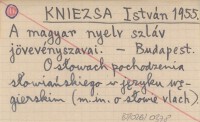 KNIEZSA István 1955.
A magyar nyelv szláv
jövevényszavai. – Budapest.
O słowach pochodzenia
słowiańskiego w języku wę-
gierskim (m.in. o słowie vlach).